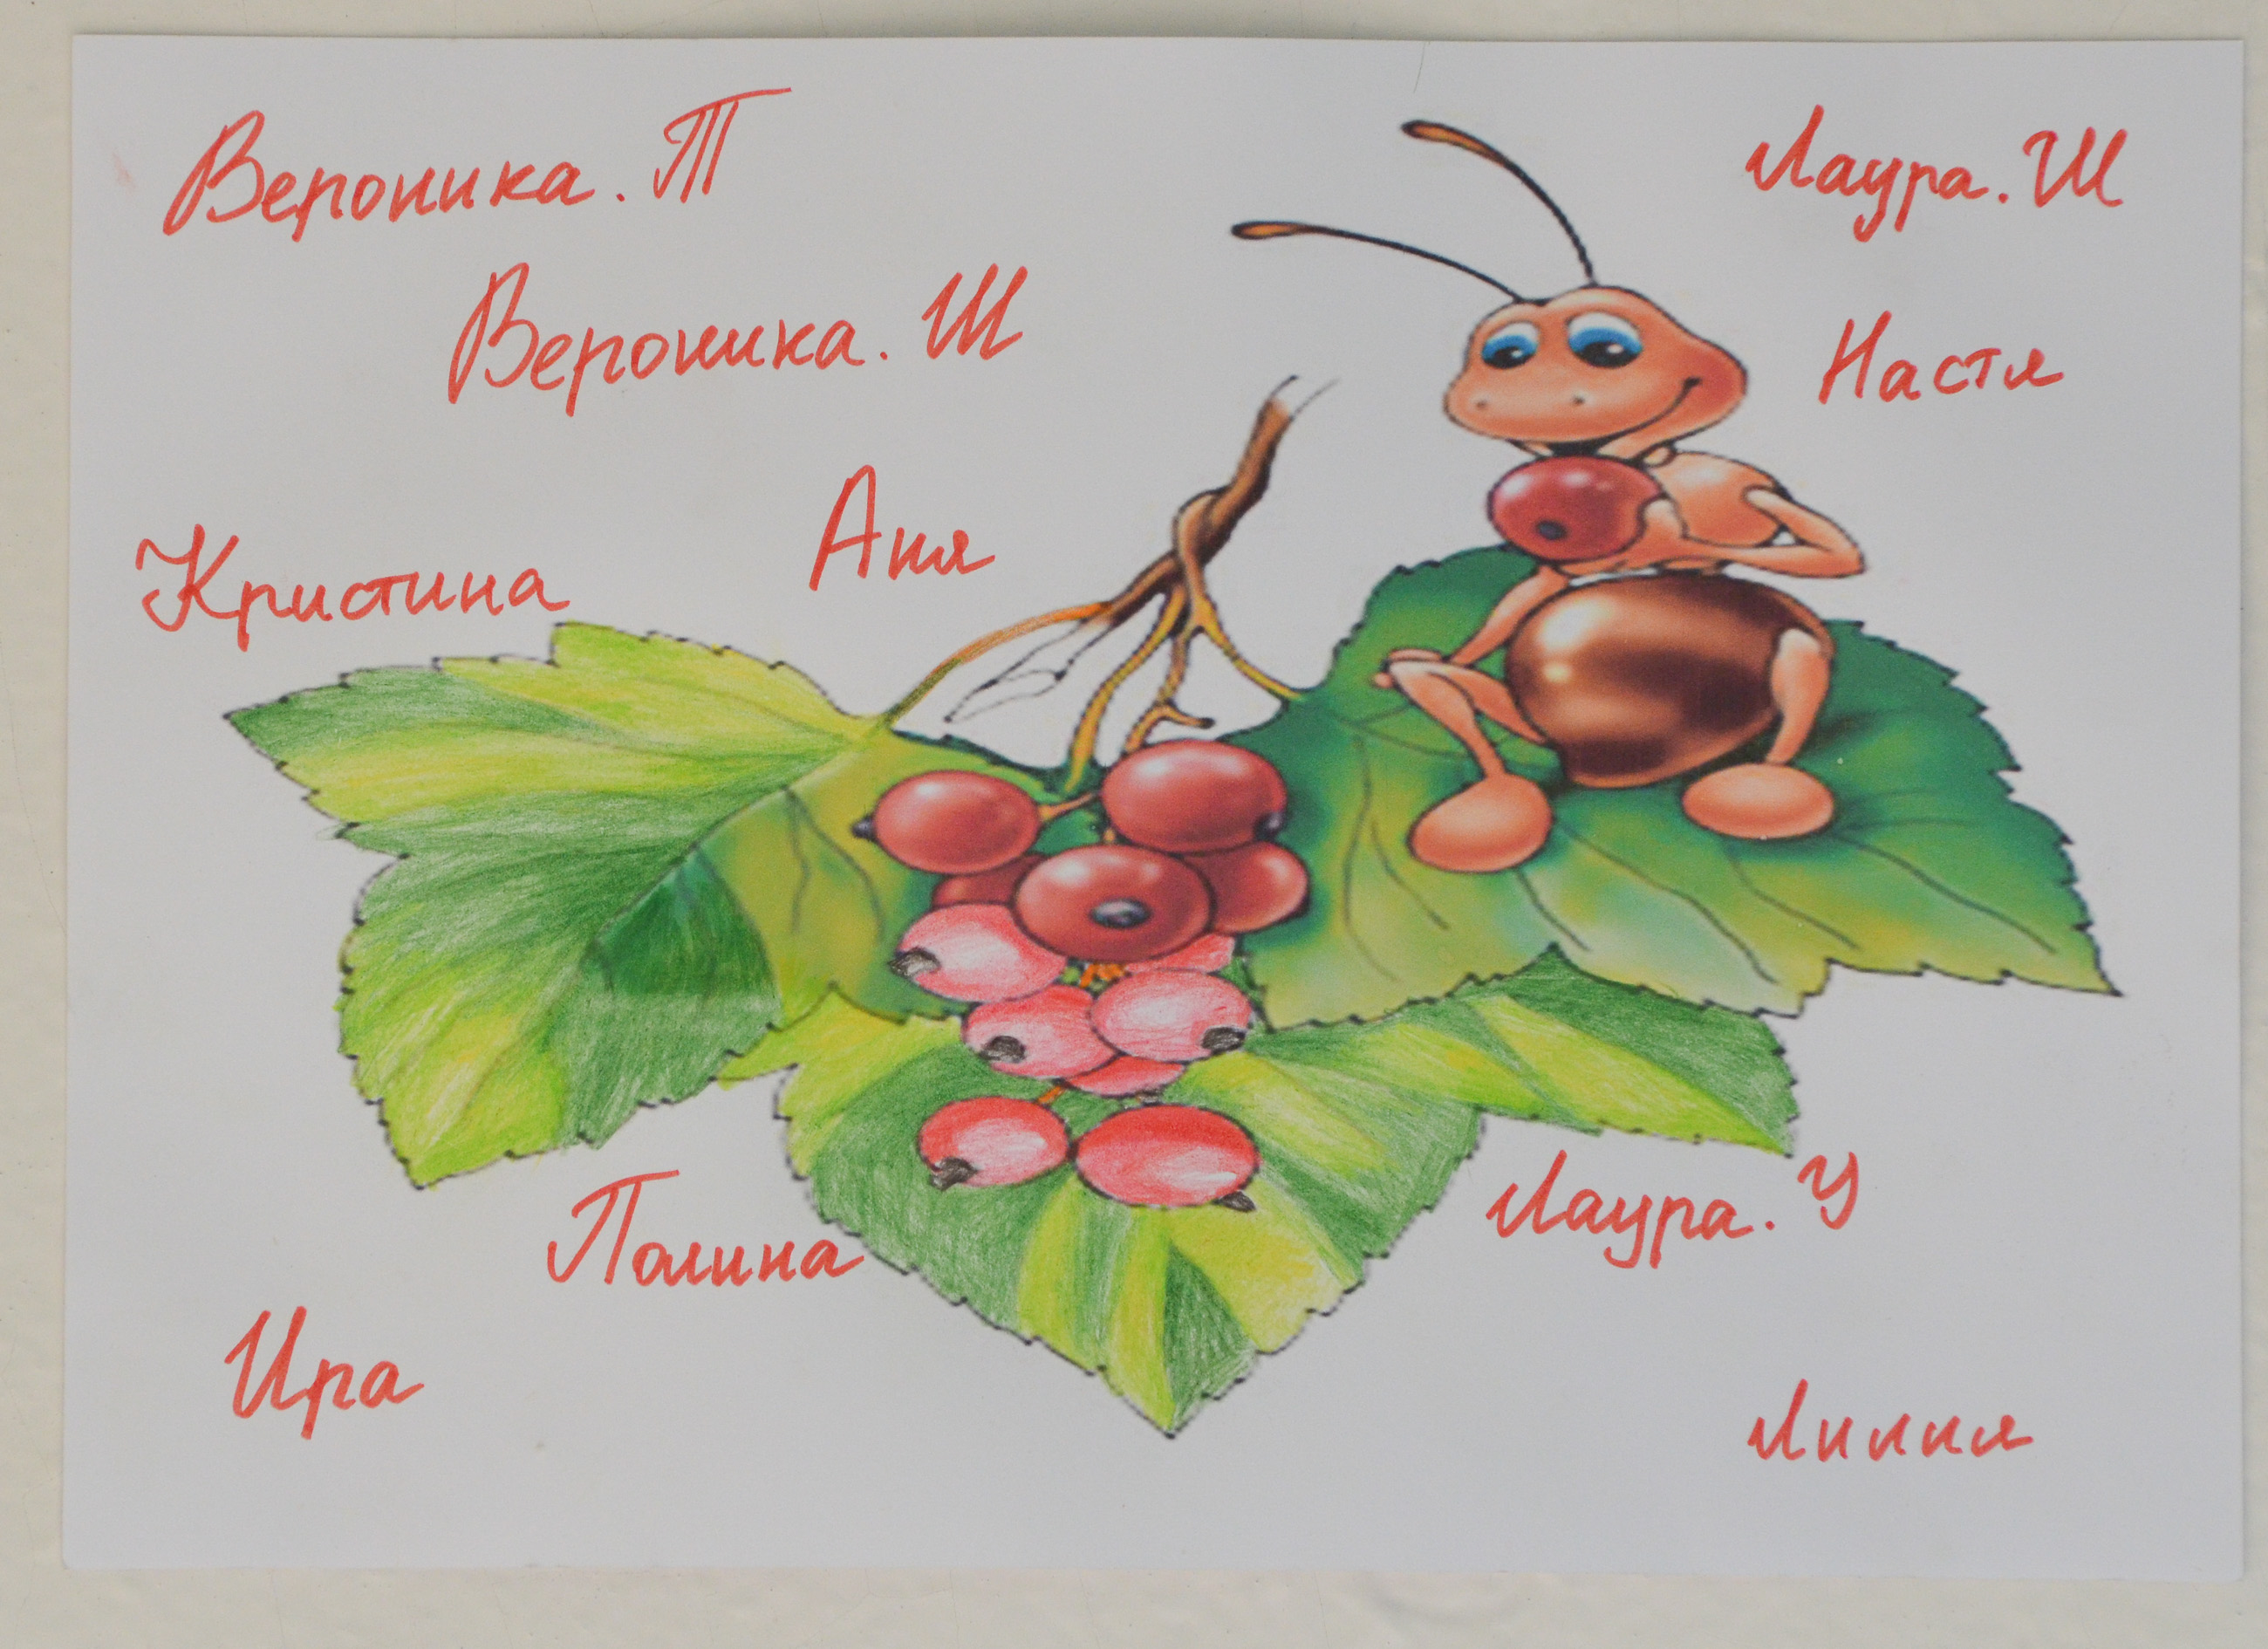 Вероника. Т
Лаура. Ш
Вероника. Ш
Настя
Аня
Кристина
Полина
Лаура. У
Ира
Лилия